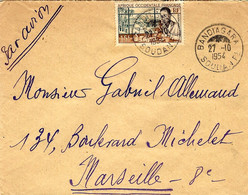 Par avion
AFRIQUE OCCIDENTALE FRANÇAISE
SOUDAN
BANDIAGARA
27-10
1954
SOUDAN
Monsieur Gabriel Allemand
134, Boulevard Michelet
Marseille - 8e